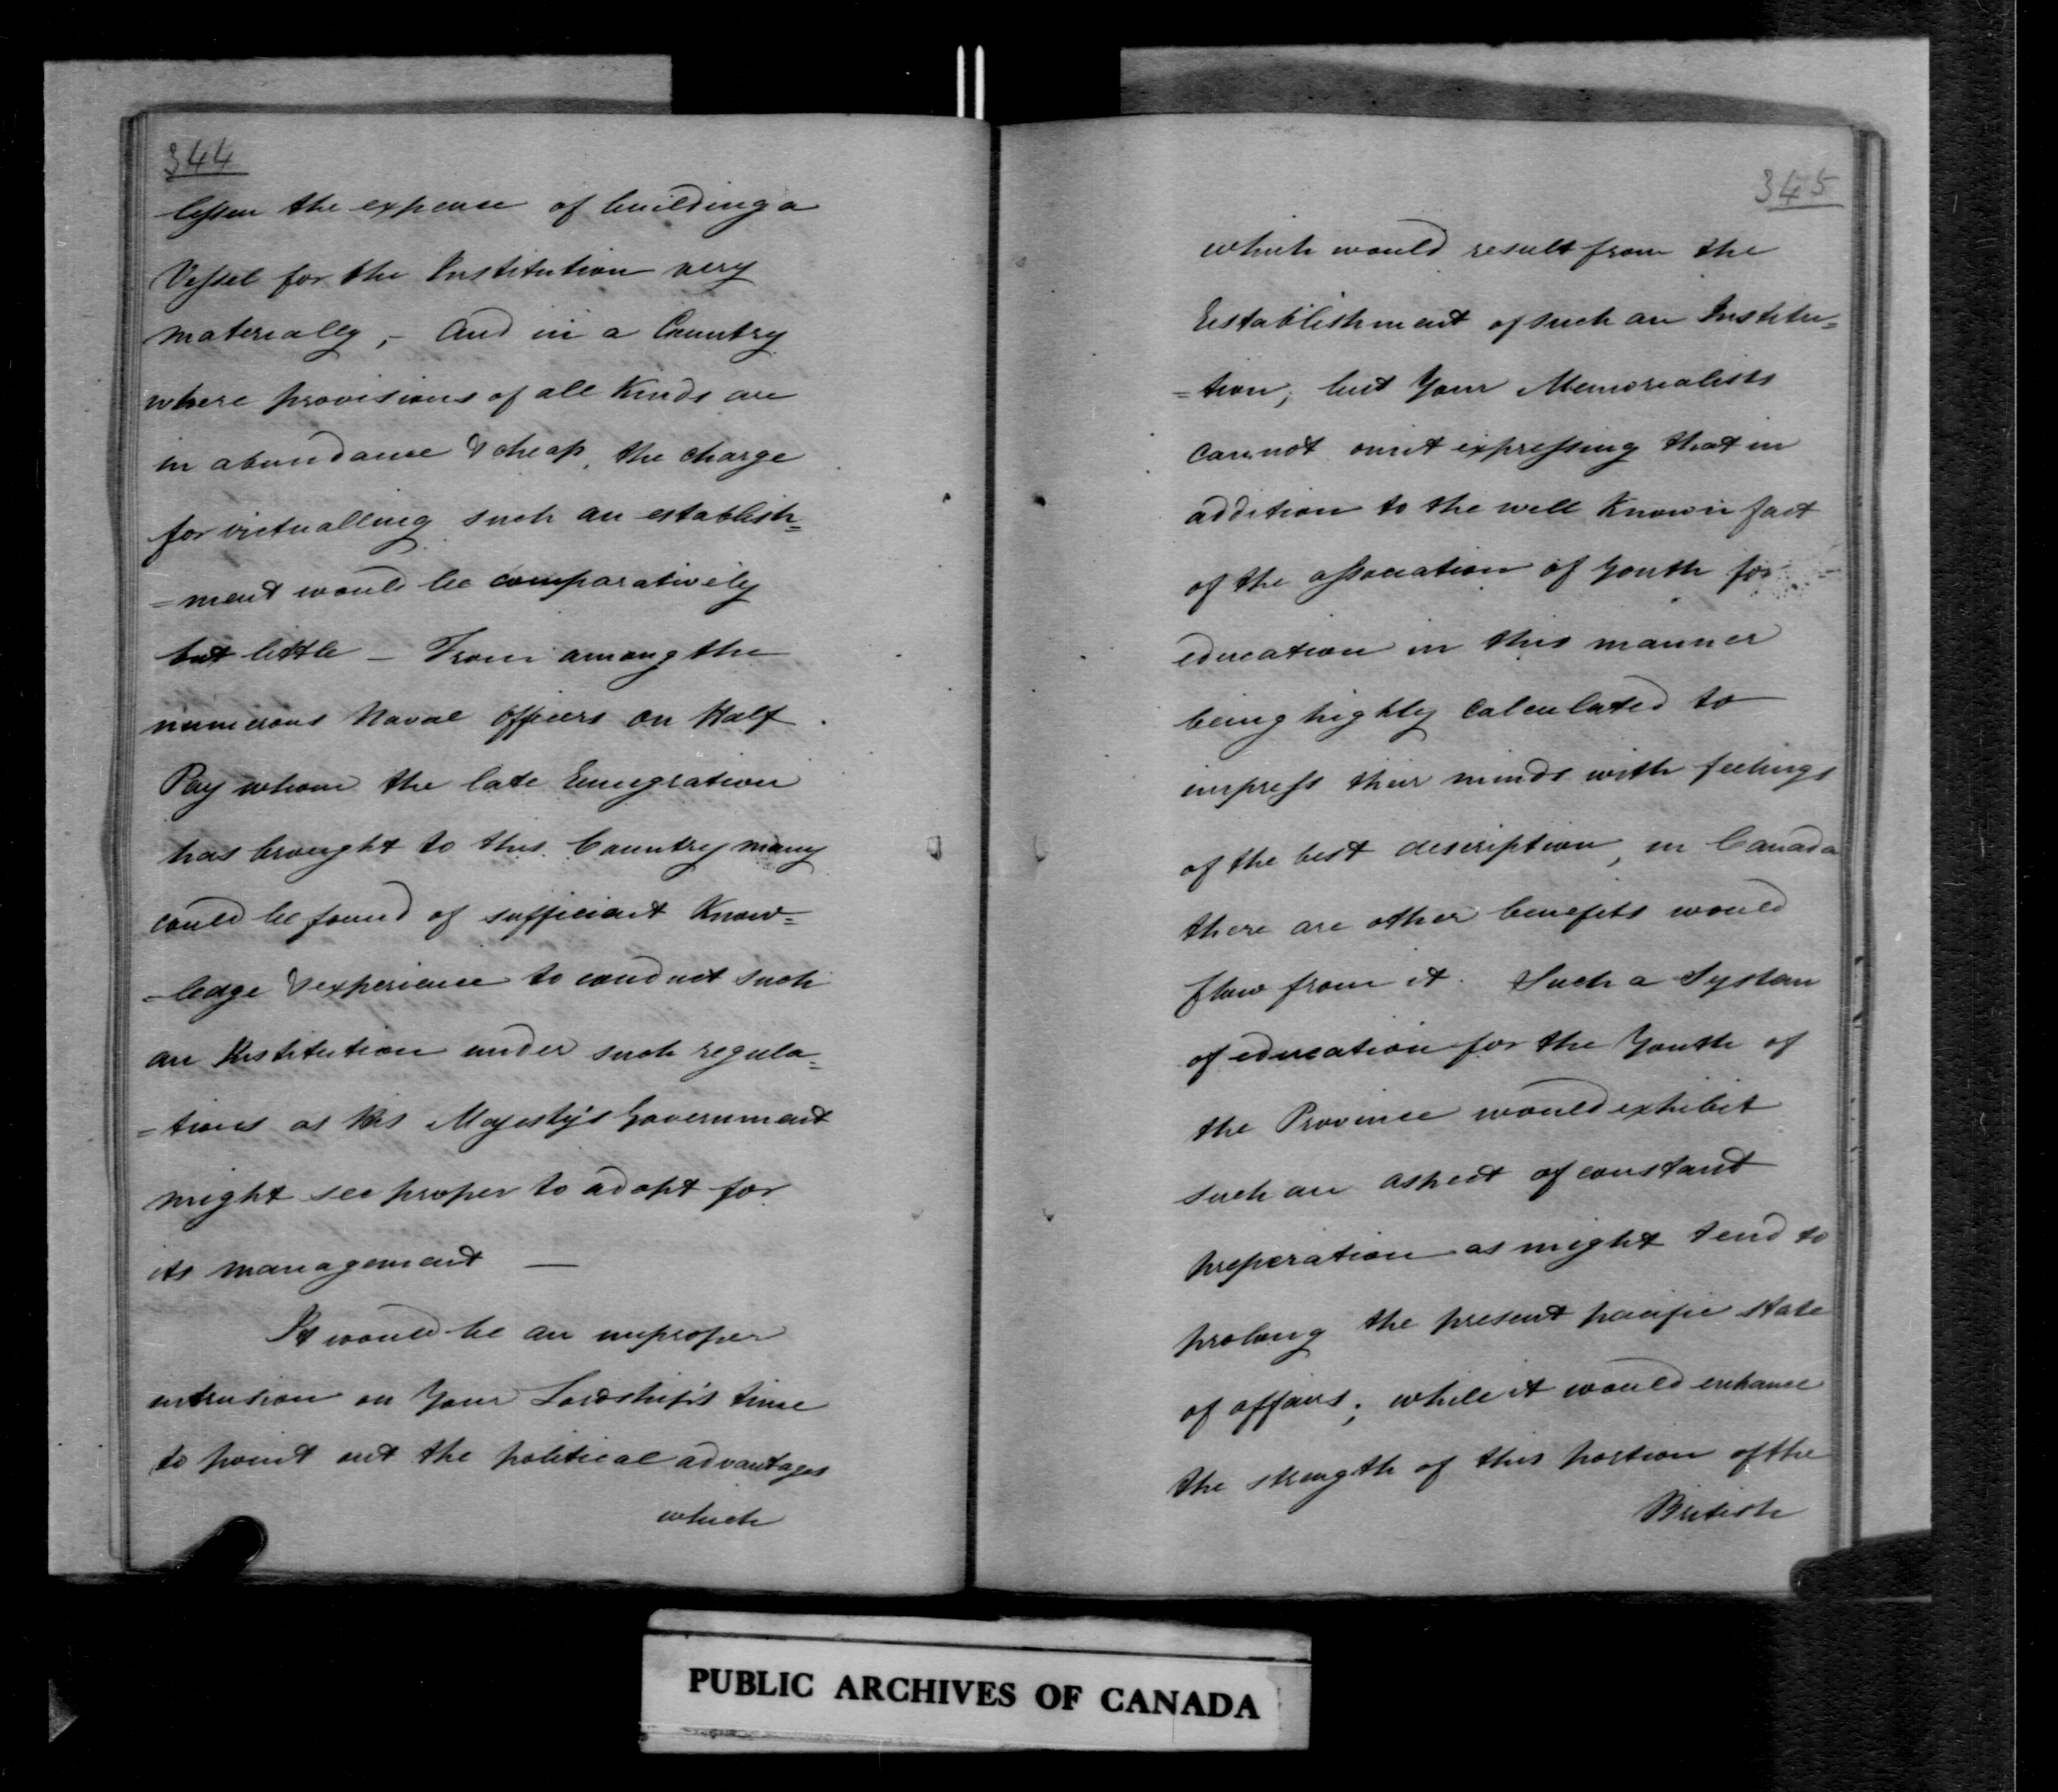 344
lessen the expense of building a
Vessel for the Institution very
materially, - And in a Country
where provisions of all Kinds are
in abundance & cheap, the charge
for victualling such an establish=
=ment would be comparatively
but little - From among the
numerous Naval Officers on Half
Pay whom the late Emigration
has brought to this Country many
could be found of sufficient Know=
=ledge & experience to conduct such
an Institution under such regula=
=tions as His Majesty's Government
might see proper to adopt for
its management —
It would be an improper
intrusion on Your Lordship's time
to point out the political advantages
which
345
which would result from the
Establishment of such an Institu=
=tion; but Your Memorialists
cannot omit expressing that in
addition to the well Known fact
of the association of Youth for
education in this manner
being highly calculated to
impress their minds with feelings
of the best description, in Canada
there are other benefits would
flow from it. Such a System
of education for the Youth of
the Province would exhibit
such an aspect of constant
preperation as might tend to
prolong the present pacific state
of affairs; while it would enhance
the strength of this portion of the
British
PUBLIC ARCHIVES OF CANADA